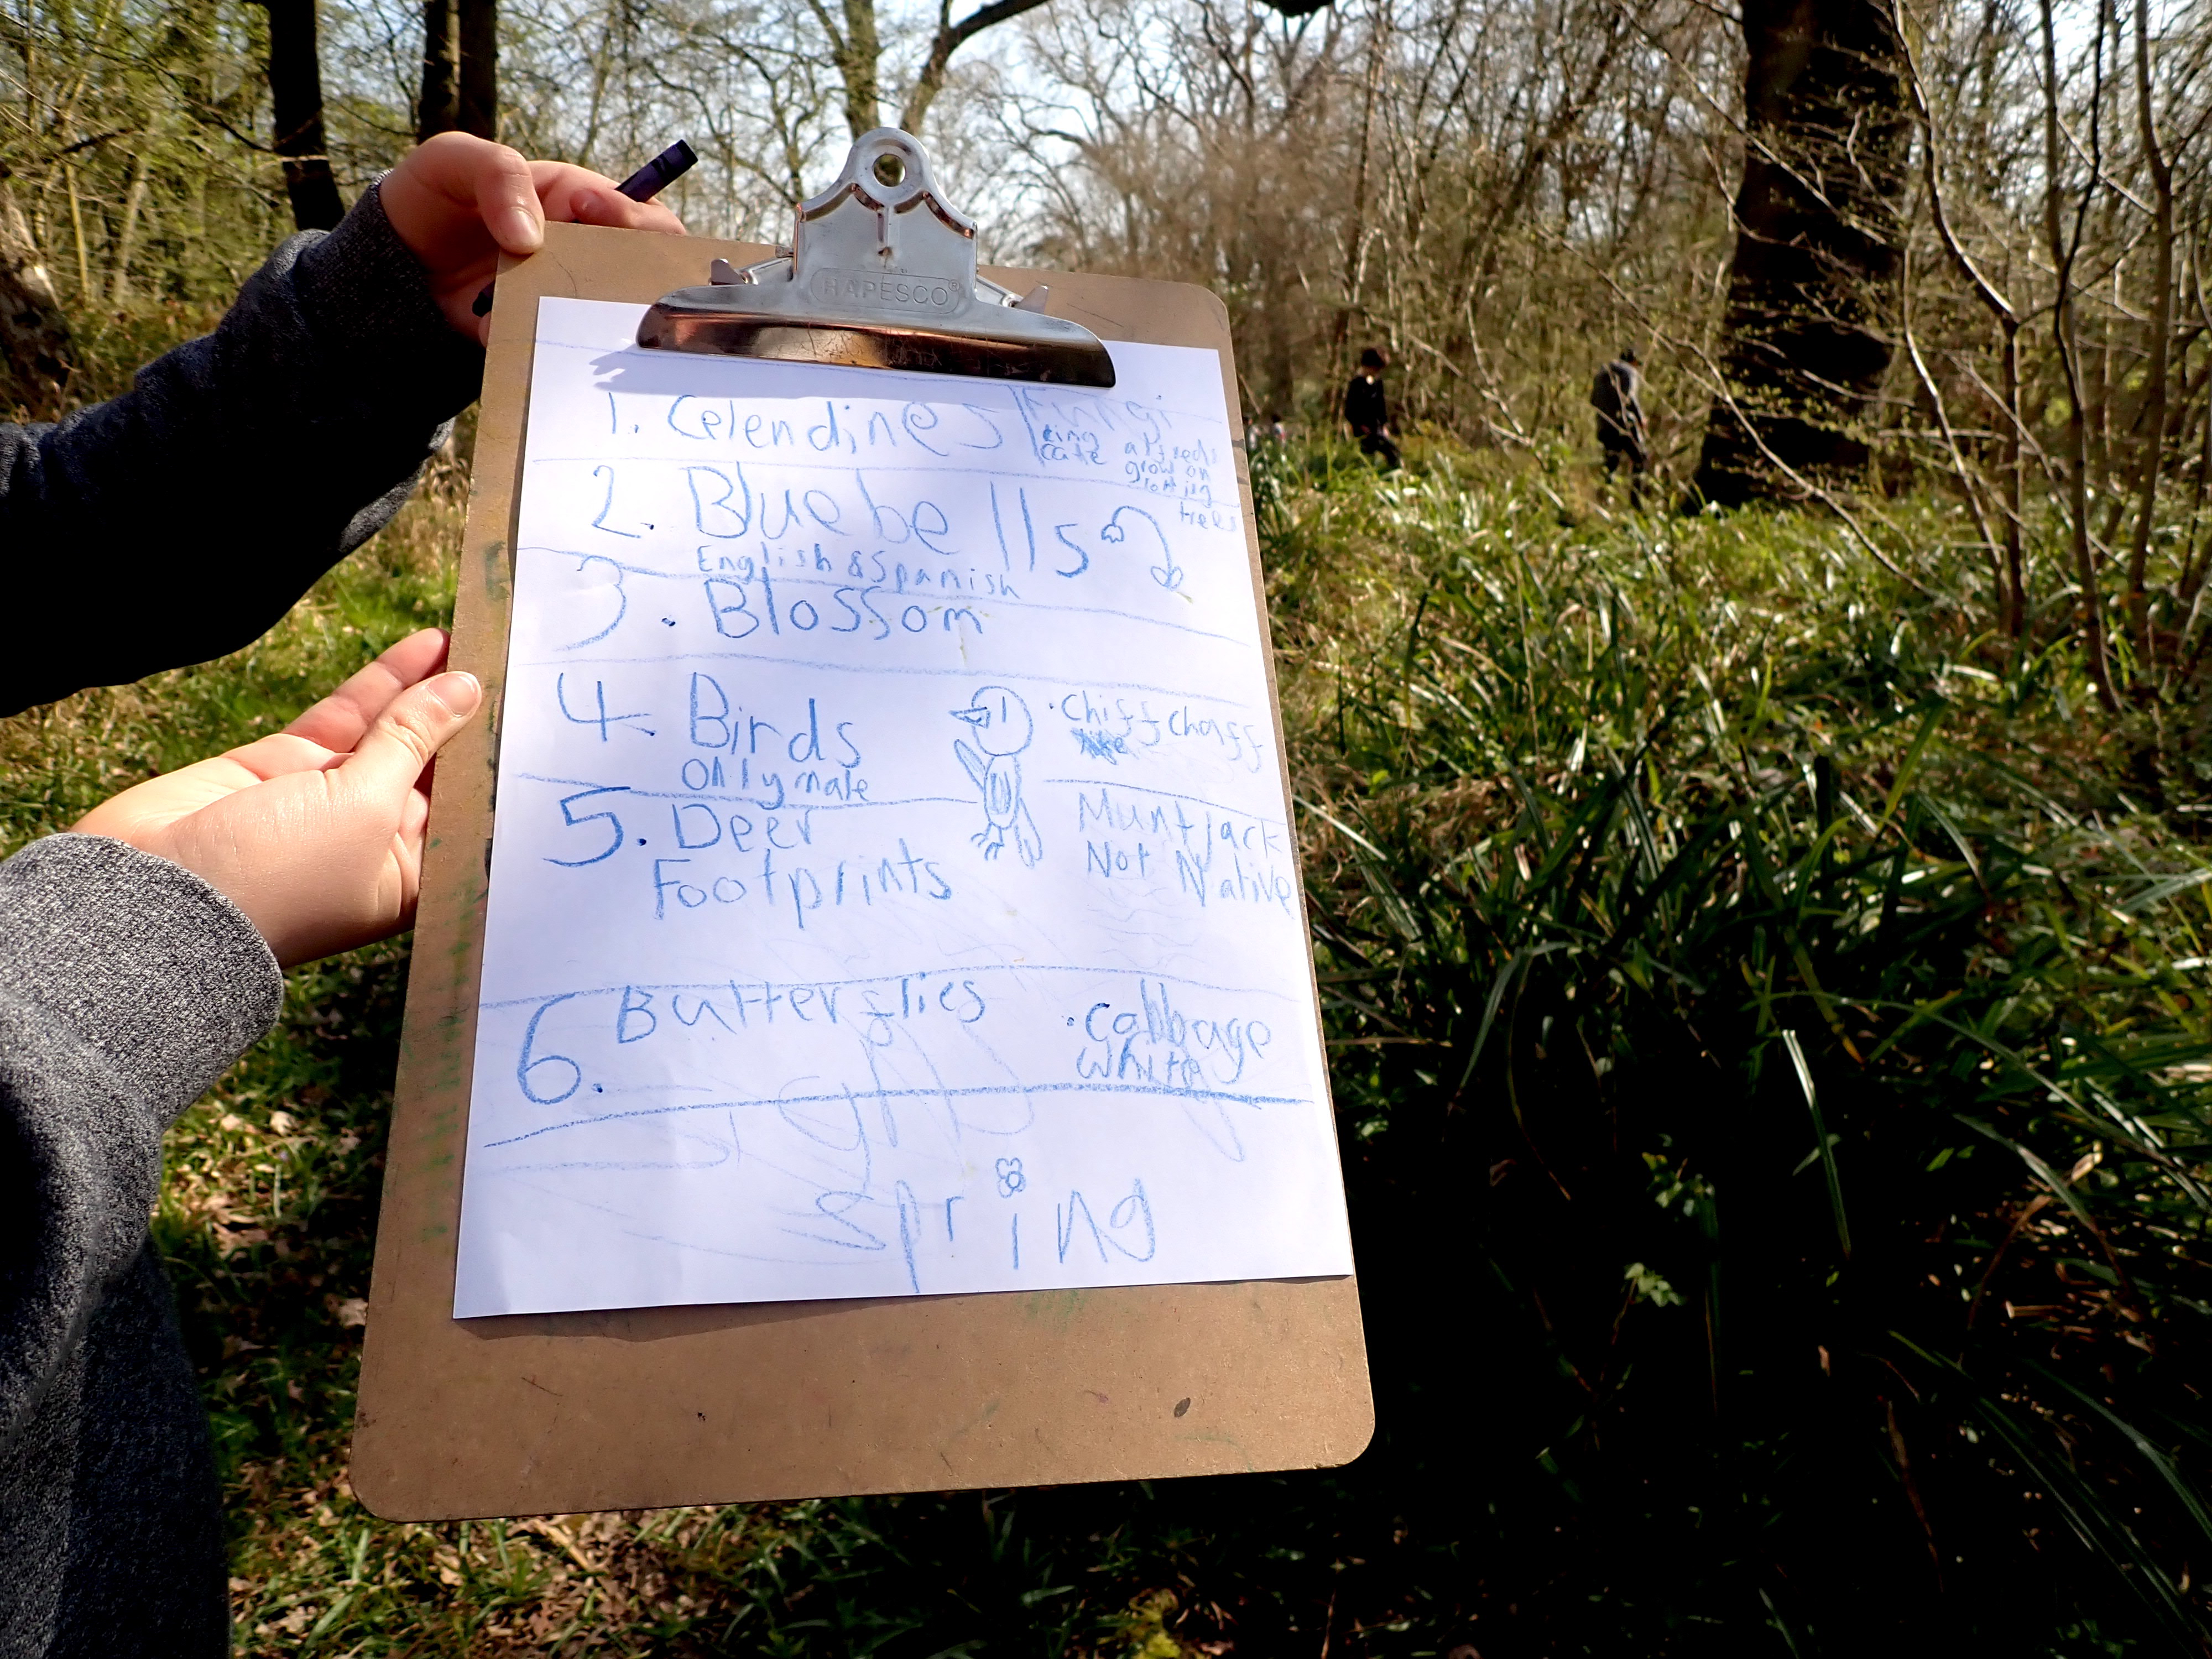 RAPESCO®
1. Celendines
Fungi
King alfreds
cake grow on
rotting
trees
2. Bluebells
English & Spanish
3. Blossom
4. Birds
Only male
· Chiffchaff
5. Deer
Footprints
Muntjack
Not Native
6. Butterflies
· Cabbage
white
Spring